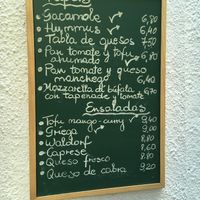 Tapas
Guacamole 6,80
Hummus 6,40
Tabla de quesos
Pan tomate y tofu
ahumado 6,80
Pan tomate y queso
manchego 6,40
Mozzarella di búfala
con tapenade y tomate 6,70
Ensaladas
Tofu mango-curry 9,40
Griega 9,00
Waldorf 8,60
Caprese 8,80
Queso fresco 8,80
Queso de cabra 9,20